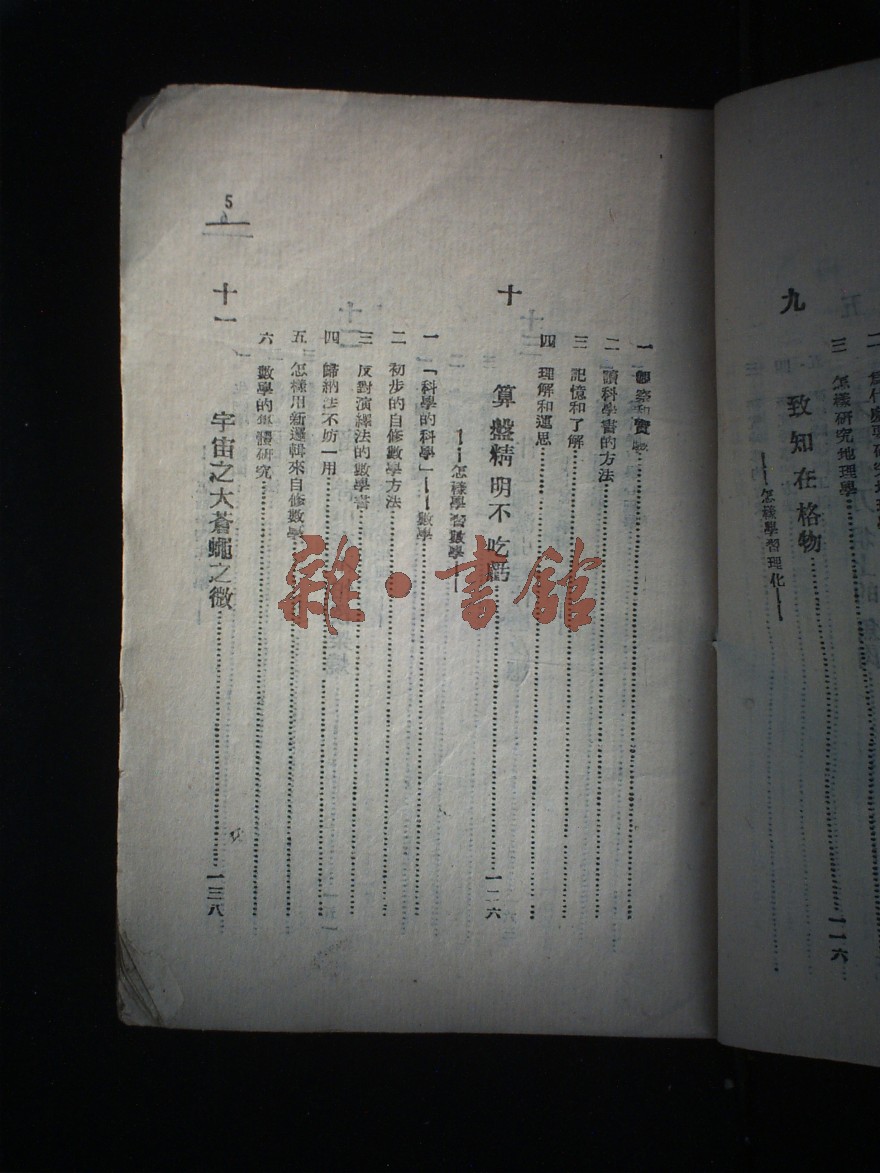 三 怎樣研究地理學
九 致知在格物 一一六
——怎樣學習理化——
一 觀察和實驗
二 讀科學書的方法
三 記憶和了解
四 理解和運思
十 算盤精明不吃虧 一二六
——怎樣學習數學——
一 「科學的科學」——數學
二 初步的自修數學方法
三 反對演繹法的數學書
四 歸納法不妨一用
五 怎樣用新邏輯來自修數學
六 數學的集體研究
十一 宇宙之大蒼蠅之微 一三八
5
雜·書館